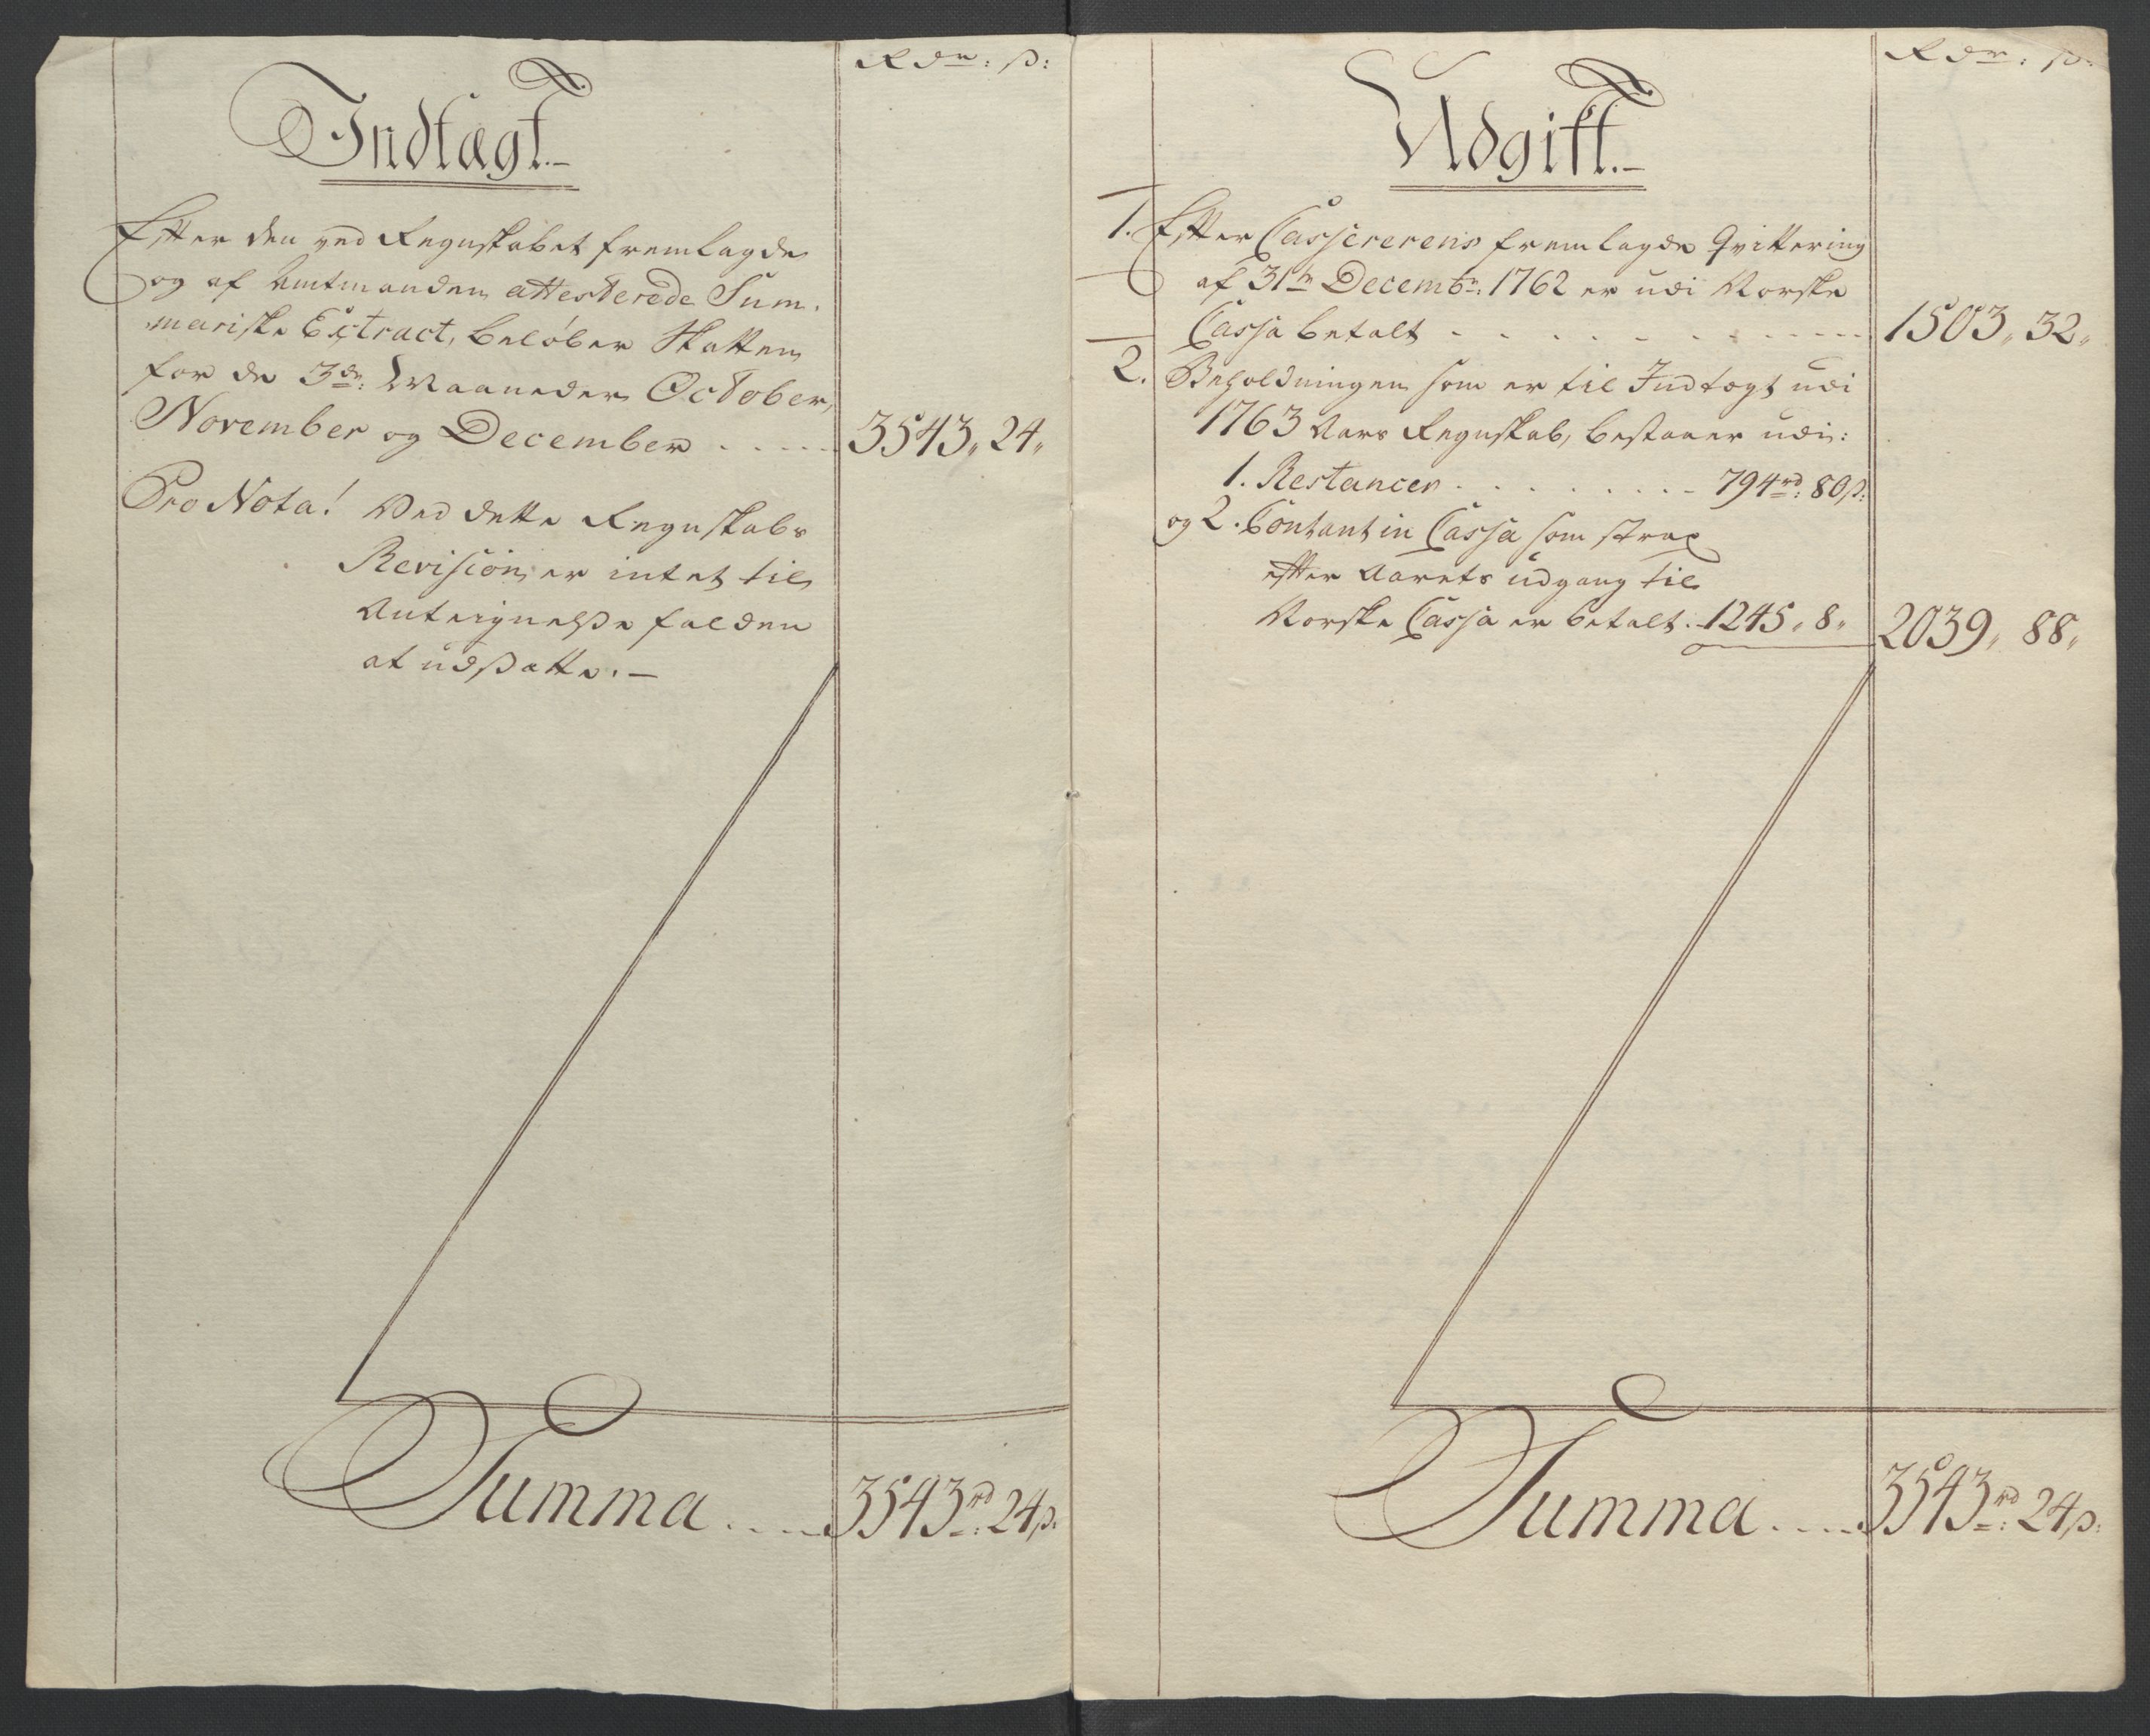 Rdr: ß:
Indtægt.-
Efter den ved Regnskabet fremlagde
og af Amtmanden attesterede Sum-
mariske Extract, beløber Skatten
for de 3de: Maaneder October,
November og December . . . . . 3543 " 24 "
Pro Nota! Ved dette Regnskabs
Revision er intet til
Anteignelße falden
at udßætte. -
Summa . . . . 3543rd: 24ß.
Rdr: ß:
Udgift.-
1. Efter Casserens fremlagde Qvittering
af 31te Decembr: 1762 er udi Norske
Cassa betalt . . . . . . . . . . 1503 " 32 "
2. Beholdningen som er til Indtægt udi
1763 Aars Regnskab, bestaaer udi:
1. Restancer . . . . . . . . . 794rd: 80ß:
og 2. Contant in Cassa som strax
efter Aarets udgang til
Norske Cassa er betalt . 1245 " 8 " 2039 " 88 "
Summa . . . . 3543rd: 24ß: